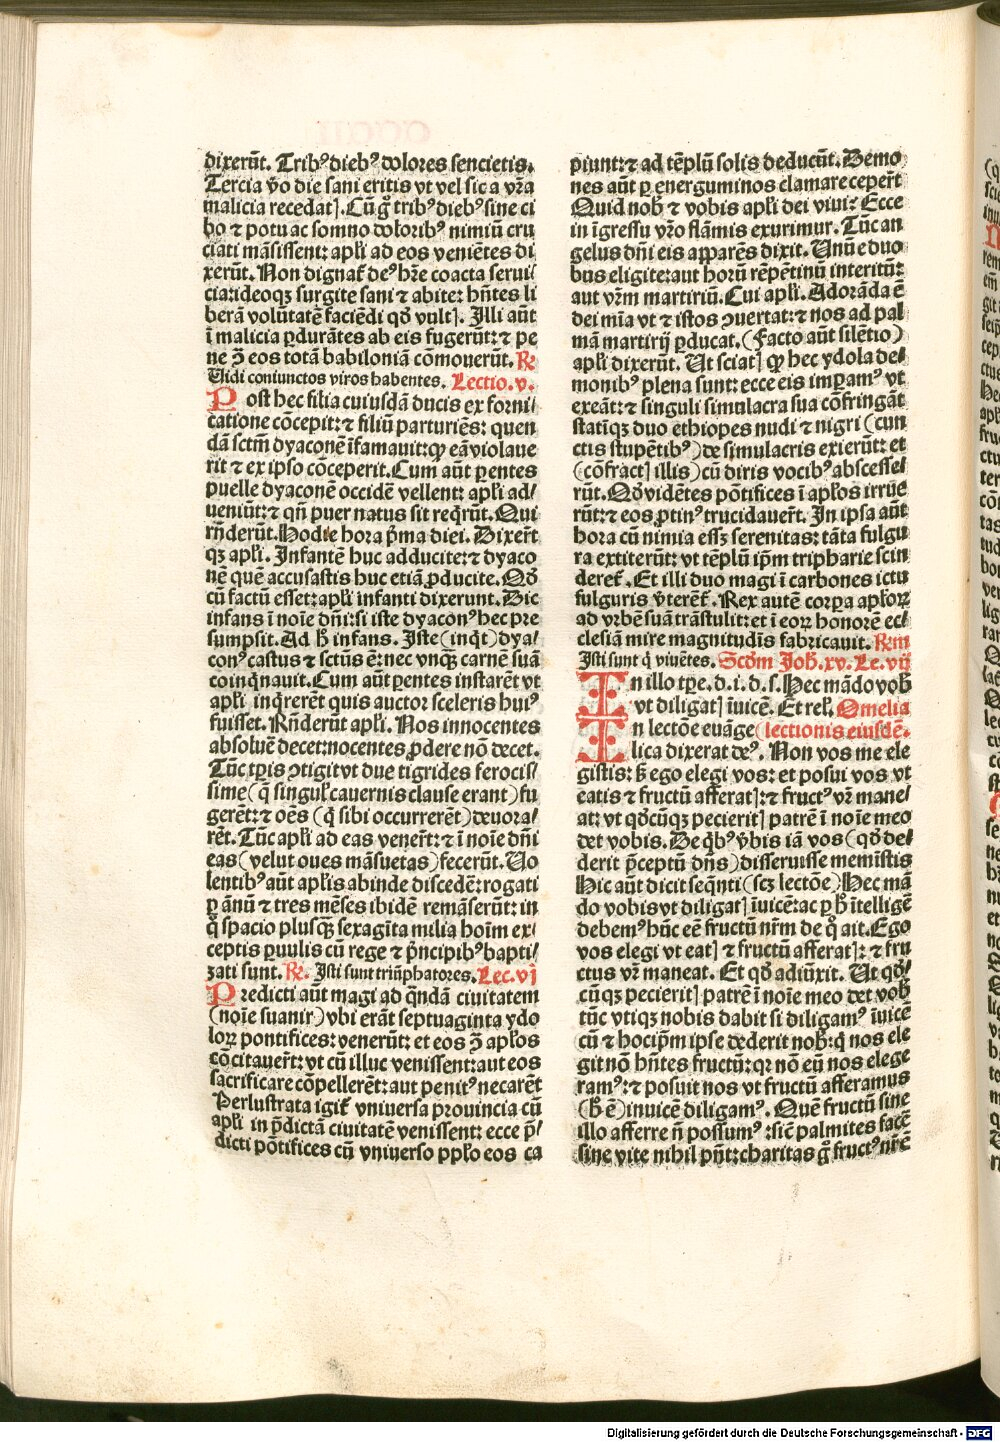 dixerūt. Tribꝰ diebꝰ dolores sencietis.
Tercia v̄o die sani eritis vt vel sic a vr̄a
malicia recedatꝭ. Cū gͦ tribꝰ diebꝰ sine ci
bo ⁊ potu ac somno doloribꝰ nimiū cru
ciati māsissent: apl̄i ad eos veniētes di
xerūt. Non dignat᷑ deꝰ hr̄e coacta serui
cia: ideoqꝫ surgite sani ⁊ abite: hn̄tes li
berā volūtatē faciēdi qd̄ vultꝭ. Illi aūt
ī malicia ꝑdurātes ab eis fugerūt: ⁊ pe
ne ꝯ̄ eos totā babiloniā cōmouerūt. ℞
Vidi coniunctos viros habentes. Lectio. v.
Post hec filia cuiusdā ducis ex forni
catione cōcepit: ⁊ filiū parturiēs: quen
dā sctm̄ dyaconē īfamauit: ꝙ eā violaue
rit ⁊ ex ipso cōceperit. Cum aūt ꝑentes
puelle dyaconē occidē vellent: apl̄i ad/
ueniūt: ⁊ qn̄ puer natus sit reqͥrūt. Qui
rn̄derūt. Hodie hora pͥma diei. Dixer̄t
qꝫ apl̄i. Infantē huc adducite: ⁊ dyaco
nē quē accusastis huc etiā ꝓducite. Qd̄
cū factū esset: apl̄i infanti dixerunt. Dic
infans ī noīe dn̄i: si iste dyaconꝰ hec pre
sumpsit. Ad h̄ infans. Iste (inqͥt) dya/
conꝰ castus ⁊ sctūs ē: nec vnqꝫ̄ carnē suā
coinqͥnauit. Cum aūt ꝑentes instarēt vt
apl̄i inqͥrerēt quis auctor sceleris huiꝰ
fuisset. Rn̄derūt apl̄i. Nos innocentes
absoluē decet: nocentes ꝓdere nō decet.
Tūc tꝑis ꝯtigit vt due tigrides ferocis/
sime (q̄ singul᷑ cauernis clause erant) fu
gerēt: ⁊ oēs (q̄ sibi occurrerēt) deuora/
rēt. Tūc apl̄i ad eas vener̄t: ⁊ ī noīe dn̄i
eas (velut oues māsuetas) fecerūt. Vo
lentibꝰ aūt aplis abinde discedē: rogati
ꝑ ānū ⁊ tres mēses ibidē remāserūt: in
qͦ spacio plusqꝫ̄ sexagīta milia hoīm ex/
ceptis ꝑuulis cū rege ⁊ pͥncipibꝰ bapti/
zati sunt. ℞. Isti sunt triūphatores. Lec. vj
Predicti aūt magi ad qͣndā ciuitatem
(noīe suanir) vbi erāt septuaginta ydo
loꝝ pontifices: venerūt: et eos ꝯ̄ apl̄os
cōcitauer̄t: vt cū illuc venissent: aut eos
sacrificare cōpellerēt: aut penitꝰ necarēt
Perlustrata igit᷑ vniuersa prouincia cū
apl̄i in p̄dictā ciuitatē venissent: ecce p̄/
dicti pōtifices cū vniuerso ppl̄o eos ca
piunt: ⁊ ad tēplū solis deducūt. Demo
nes aūt ꝑ energuminos clamare ceper̄t
Quid nob̄ ⁊ vobis apl̄i dei viui? Ecce
in īgressu vr̄o flāmis exurimur. Tūc an
gelus dn̄i eis apparēs dixit. Vnū e duo
bus eligite: aut horū repētinū interitū:
aut vr̄m martiriū. Cui apl̄i. Adorāda ē
dei mīa vt ⁊ istos ꝯuertat: ⁊ nos ad pal
mā martirij ꝑducat. (Facto aūt silētio)
apl̄i dixerūt. Vt sciatꝭ ꝙ hec ydola de/
monibꝰ plena sunt: ecce eis imꝑamꝰ vt
exeāt: ⁊ singuli simulacra sua cōfringāt
statīqꝫ duo ethiopes nudi ⁊ nigri (cun
ctis stupētibꝰ) de simulacris exierūt: et
(cōfractꝭ illis) cū diris vocibꝰ abscesse/
rūt. Qd̄ vidētes pōtifices ī apl̄os irrue
rūt: ⁊ eos ꝓtinꝰ trucidauer̄t. In ipsa aūt
hora cū nimia essꝫ serenitas: tāta fulgu
ra extiterūt: vt tēplū ipm̄ tripharie scin
deret᷑. Et illi duo magi ī carbones ictu
fulguris v̄teret᷑. Rex autē corꝑa apl̄oꝝ
ad vrbē suā trāstulit: et ī eoꝝ honorē ec/
clesiā mire magnitudīs fabricauit. ℞m
Isti sunt qͥ viuētes. Scd̄m Joh̄. xv. Le. vij
In illo tꝑe. d. i. d. s. Hec mādo vob̄
vt diligatꝭ īuicē. Et rel̄. Omelia
In lectōe euāge (lectionis eiusdē.
lica dixerat deꝰ. Non vos me ele
gistis: s̄ ego elegi vos: et posui vos vt
eatis ⁊ fructū afferatꝭ: ⁊ fructꝰ vr̄ mane/
at: vt qd̄cūqꝫ pecieritꝭ patrē ī noīe meo
det vobis. De qͥbꝰ v̄bis iā vos (qd̄ de/
derit p̄ceptū dn̄s) disseruisse memīstis
Hic aūt dicit seqn̄ti (scꝫ lectōe) Hec mā
do vobis vt diligatꝭ īuicē: ac ꝑ h̄ ītelligē
debemꝰ hūc eē fructū nr̄m de qͦ ait. Ego
vos elegi vt eatꝭ ⁊ fructū afferatꝭ: ⁊ fru
ctus vr̄ maneat. Et qd̄ adiūxit. Vt qd̄/
cūqꝫ pecieritꝭ patrē ī noīe meo det vob̄
tūc vtiqꝫ nobis dabit si diligamꝰ īuicē
cū ⁊ hocip̄m ipse dederit nob̄: qͥ nos ele
git nō hn̄tes fructū: qꝛ nō eū nos elege
ramꝰ: ⁊ posuit nos vt fructū afferamus
(h̄ ē) inuicē diligamꝰ. Quē fructū sine
illo afferre n̄ possumꝰ: sic̄ palmites facē
sine vite nihil pn̄t: charitas gͦ fructꝰ nr̄ ē
Digitalisierung gefördert durch die Deutsche Forschungsgemeinschaft - DFG